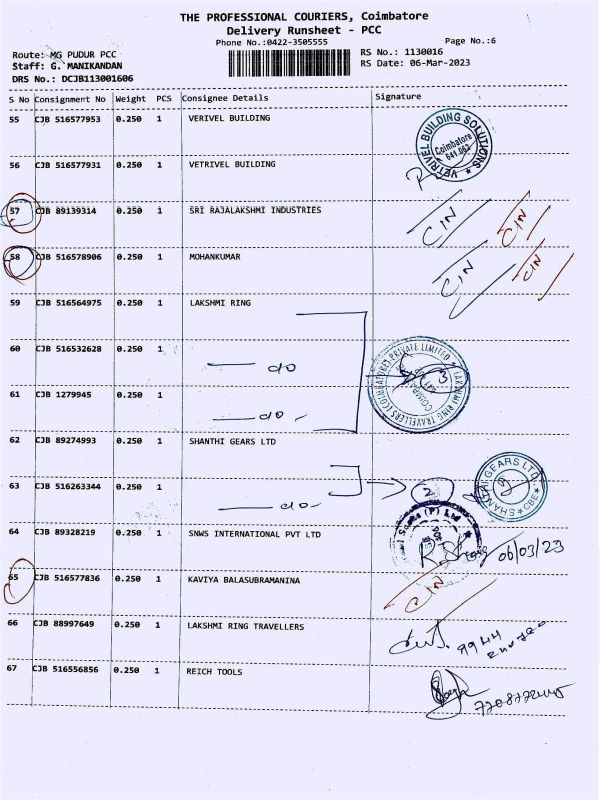 THE PROFESSIONAL COURIERS, Coimbatore
Delivery Runsheet - PCC
Phone No.:0422-3505555
Page No.:6
Route: MG PUDUR PCC
RS No.: 1130016
Staff: G. MANIKANDAN
RS Date: 06-Mar-2023
DRS No.: DCJB113001606
S No Consignment No Weight PCS Consignee Details Signature
55 CJB 516577953 0.250 1 VERIVEL BUILDING
VETRIVEL BUILDING SOLUTIONS
Coimbatore
641 062
56 CJB 516577931 0.250 1 VETRIVEL BUILDING
57 CJB 89139314 0.250 1 SRI RAJALAKSHMI INDUSTRIES CIN CIN
58 CJB 516578906 0.250 1 MOHANKUMAR CIN CIN
59 CJB 516564975 0.250 1 LAKSHMI RING
60 CJB 516532628 0.250 1 do
LAKSHMI RING TRAVELLERS (COIMBATORE) PRIVATE LIMITED
3
61 CJB 1279945 0.250 1 do
62 CJB 89274993 0.250 1 SHANTHI GEARS LTD
63 CJB 516263344 0.250 1 do 2
SHANTHI GEARS LTD
CBE
64 CJB 89328219 0.250 1 SNWS INTERNATIONAL PVT LTD 06/03/23
65 CJB 516577836 0.250 1 KAVIYA BALASUBRAMANINA CIN
66 CJB 88997649 0.250 1 LAKSHMI RING TRAVELLERS
67 CJB 516556856 0.250 1 REICH TOOLS